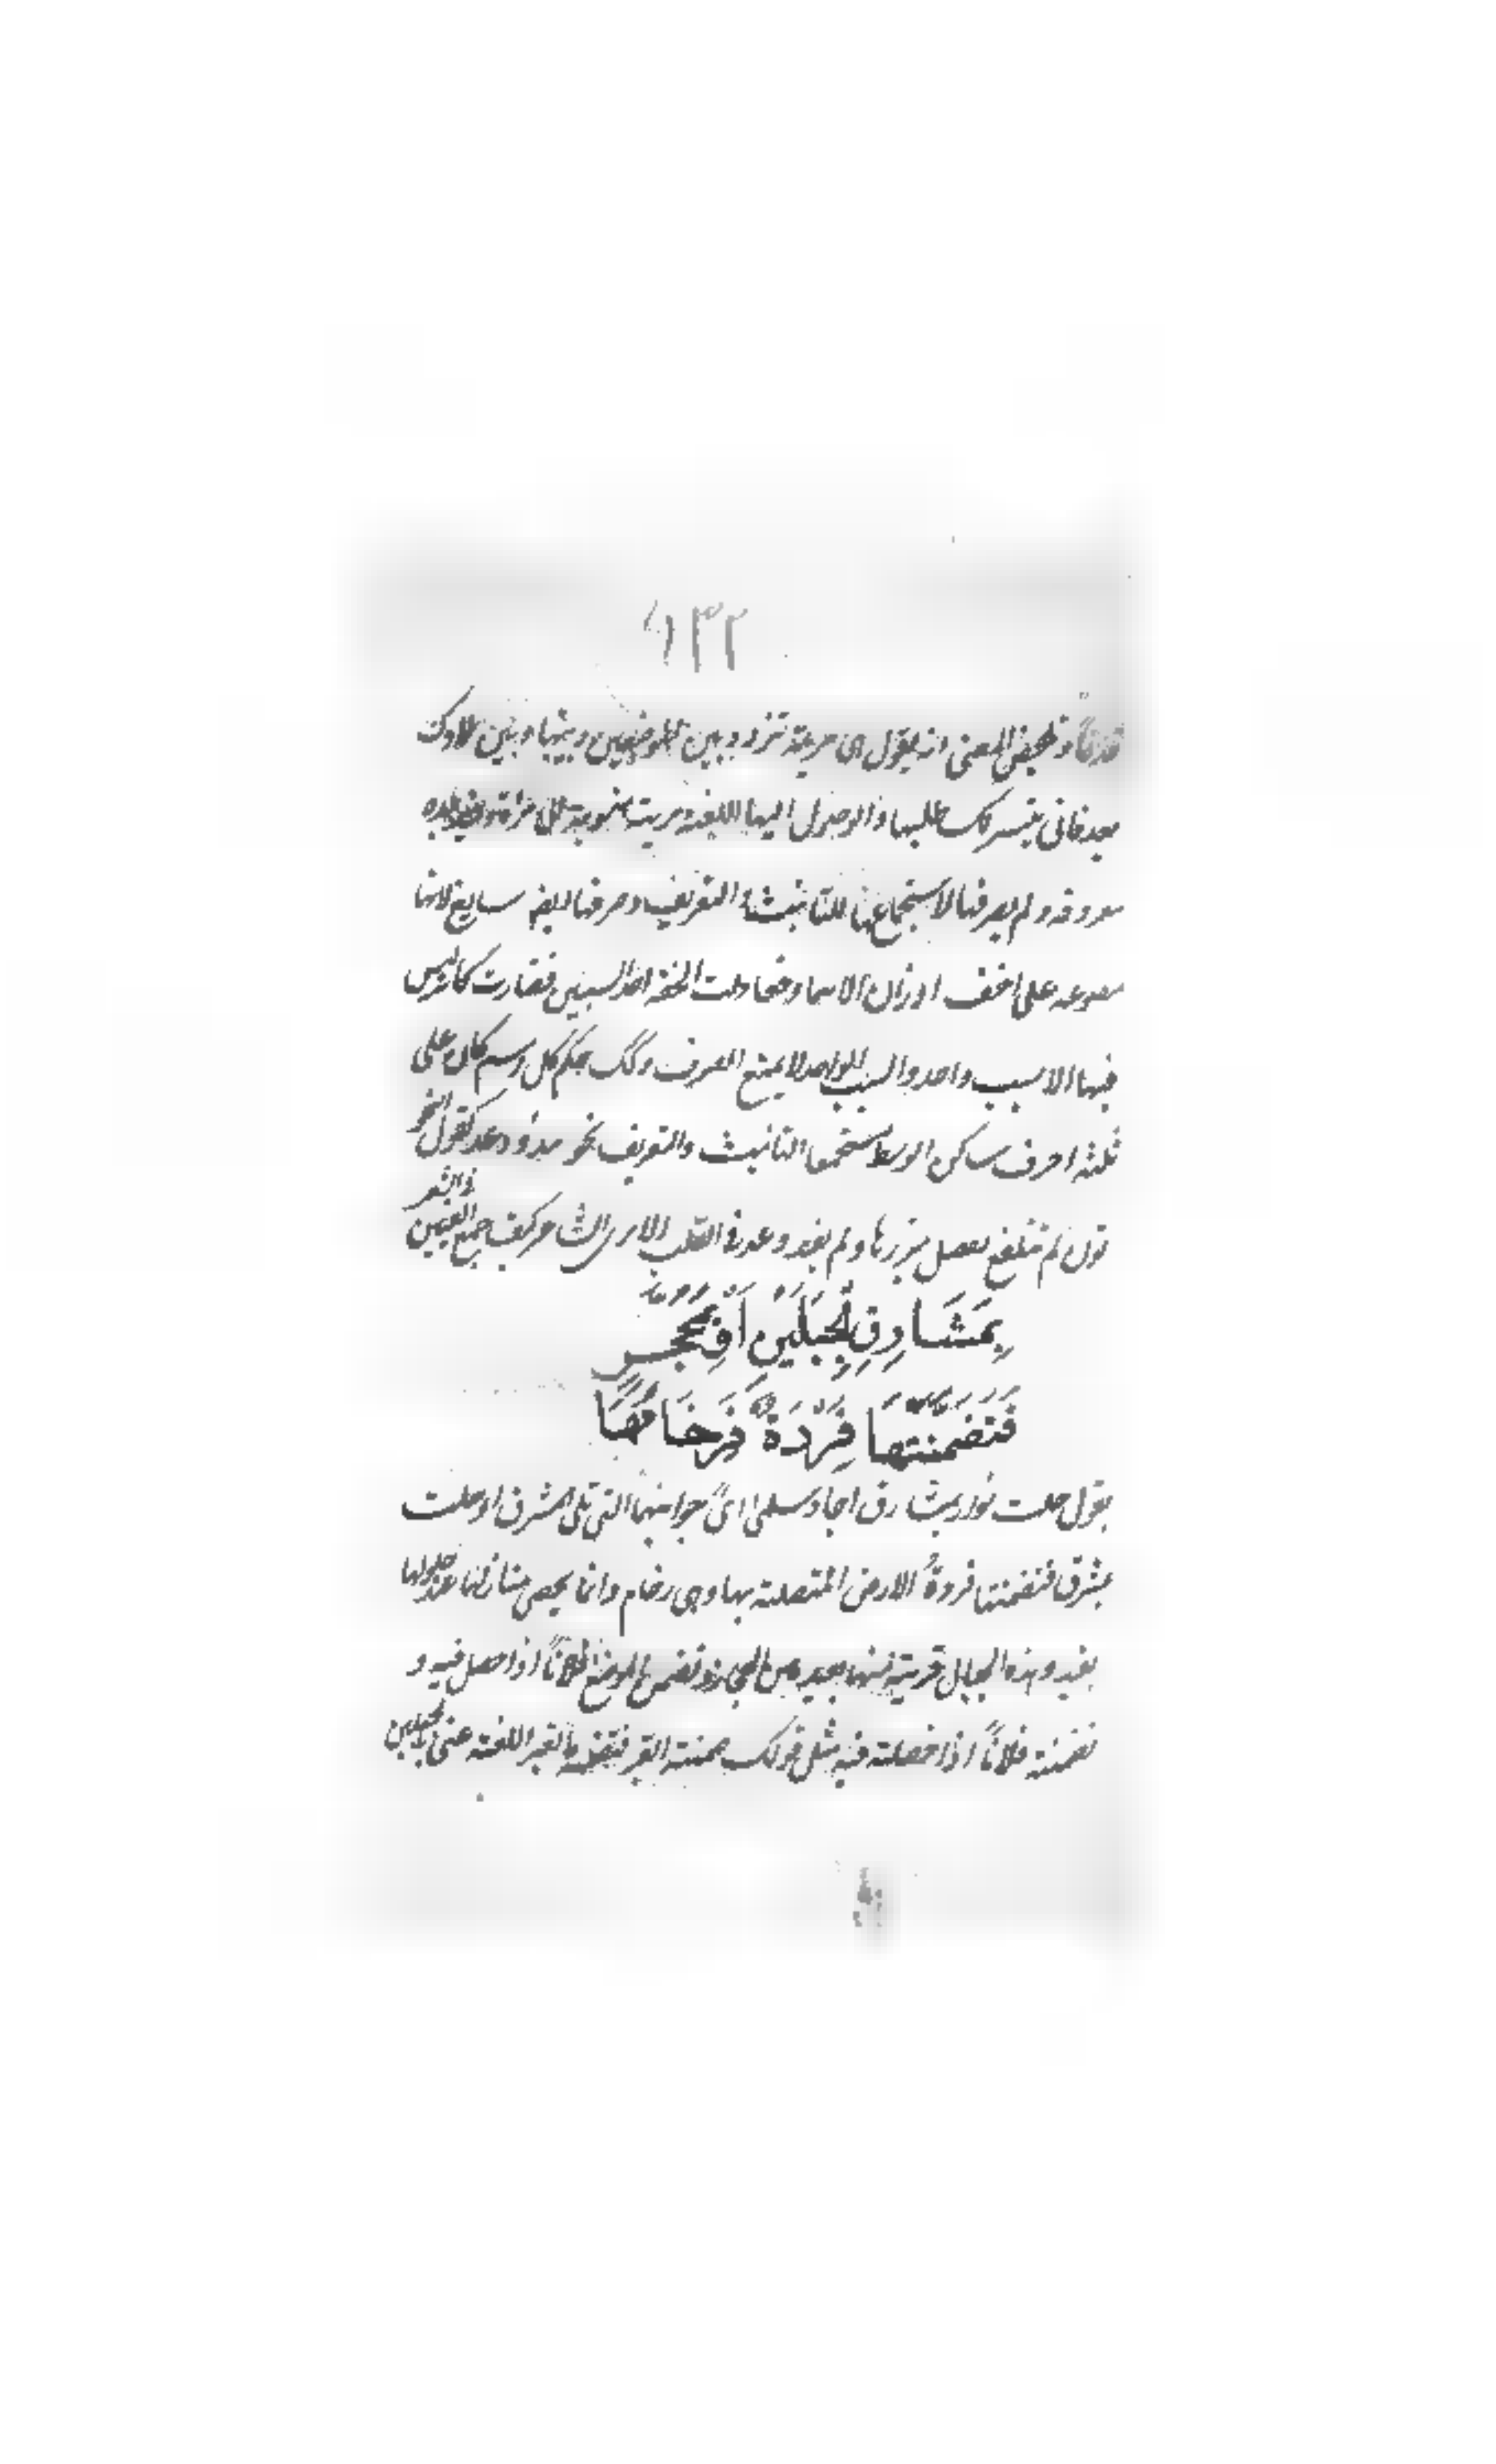 ١٣٢
قذفاً وتلخيص المعنى انه يقول هى مرية تتردد بين الموضعين وبينها وبين بلادك
بعد فانى يتيسر لك طلبها والوصول اليها اللغة مرية منسوبة الى مرة وفيد بلدة
معروفة ولم يصرفها لاستجماعها للتانيث والتعريف وصرفها ايضا سايغ لانها
مصوغه على اخف اوزان الاسماء فعادلت الخفة احد السببين فصارت كانه ليس
فيها الا سبب واحد والسبب الواحد لا يمنع الصرف وكك حكم كل اسم كان على
ثلثة احرف ساكن الوسط مستجمعا التانيث والتعريف نحو هند ودعد كقول النحو
لم تتلفع بفضل مئزرها ولم تغد دعد فى العلب الا ترى الشاعر كيف جمع اللغتين
فى البيت
بِمَشَارِقِ الْجَبَلَيْنِ اَوْ بِمُحَجَّرٍ
فَتَضَمَّنَتْهَا فَرْدَةٌ فَرُخَامُهَا
يقول حلت نوار بمشارق اجا وسلمى اى جوانبها التى تلى المشرق او حلت
بمحجر فتضمنتها فردة الارض المتصلة بها وهى رخام وانما يحصى منازلها عند حلولها
بفيد وهذه الجبال قريبة منها بعيدة من الحجاز وتضمن الموضع فلاناً اذا حصل فيه و
ضمنته فلاناً اذا حصلته فيه مثل قولك ضمنته القبر فتضمنه القبر اللغة عنى بالجبلين